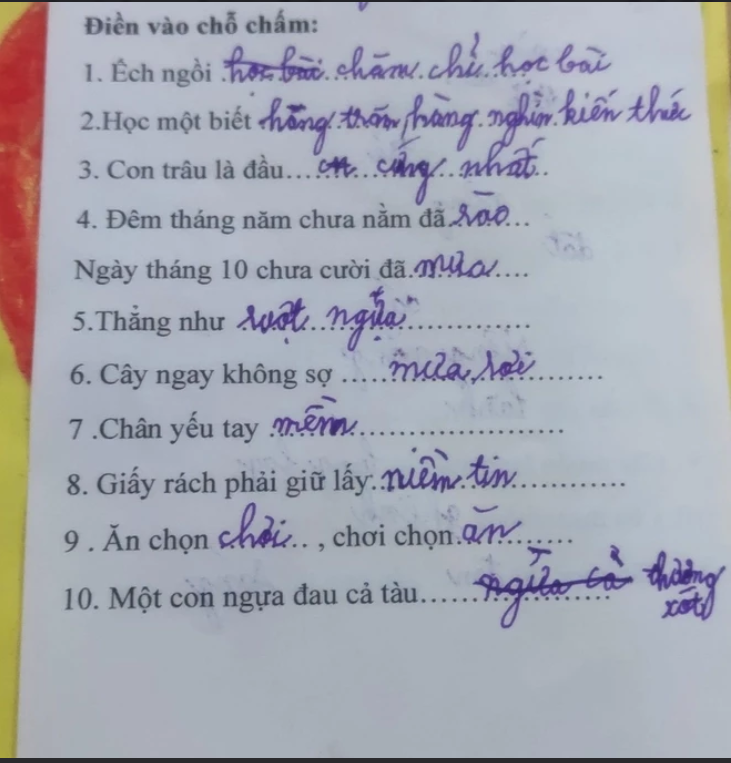 Điền vào chỗ chấm:
1. Ếch ngồi học bài chăm chỉ học bài
2.Học một biết hàng trăm, hàng nghìn kiến thức
3. Con trâu là đầu... cứng nhất..
4. Đêm tháng năm chưa nằm đã sào...
Ngày tháng 10 chưa cười đã mưa....
5.Thẳng như ruột ngựa..............
6. Cây ngay không sợ .....mưa rơi..........
7 .Chân yếu tay mềm......................
8. Giấy rách phải giữ lấy niềm tin............
9 . Ăn chọn chơi... , chơi chọn ăn......
10. Một con ngựa đau cả tàu...... ngựa cả thương
xót